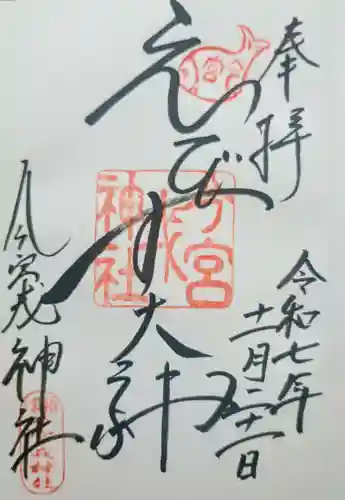 奉拝
えびす大神
今宮戎神社
令和七年
十一月二十一日
今宮戎神社